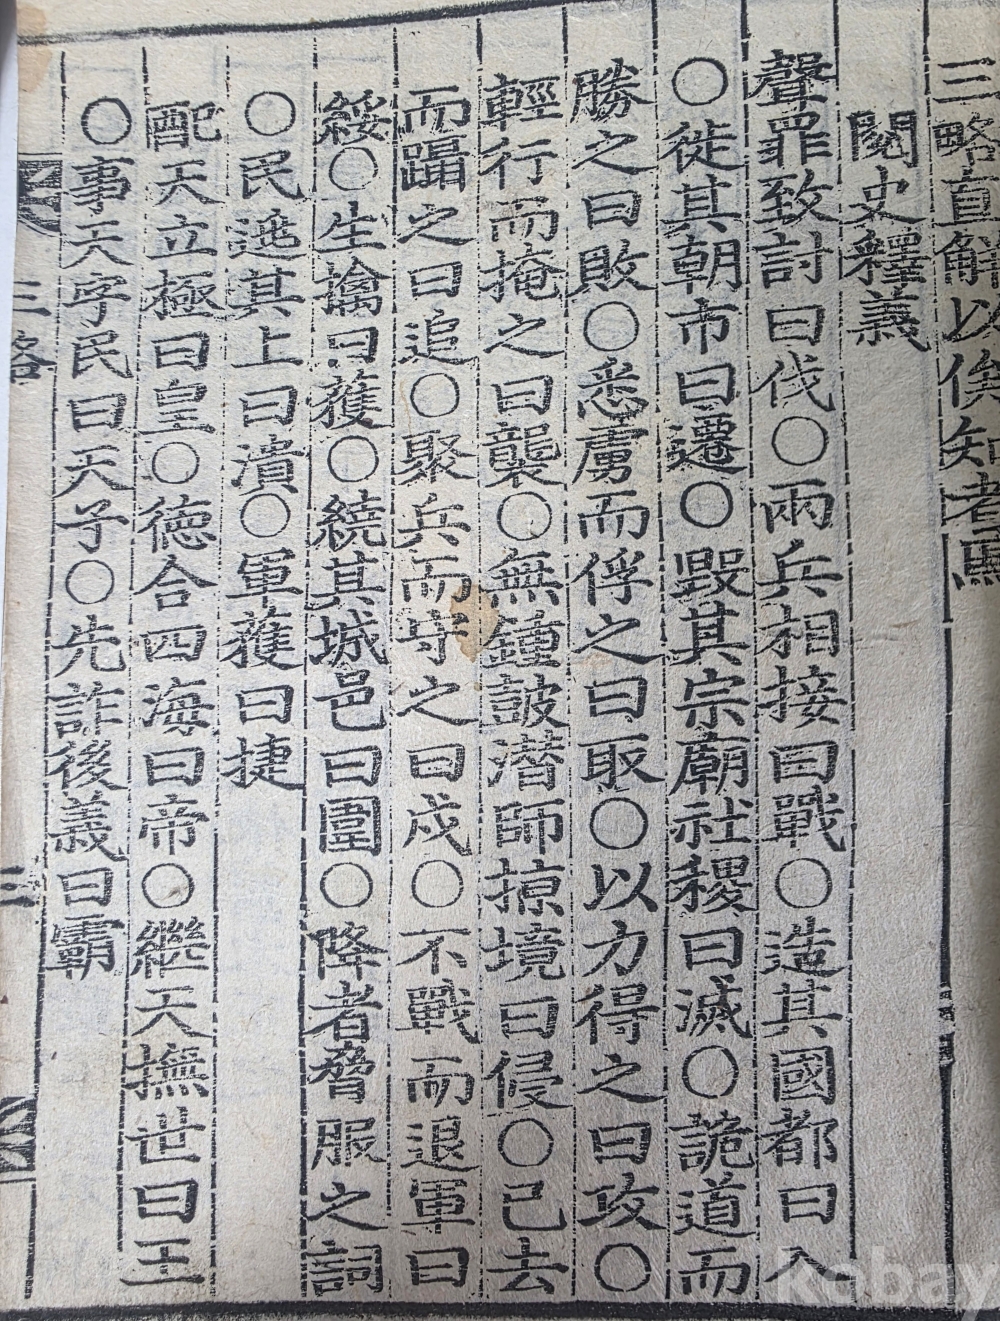 三略直解以俟知者焉
閱史釋義
聲罪致討曰伐○兩兵相接曰戰○造其國都曰入
○徙其朝市曰遷○毀其宗廟社稷曰滅○詭道而
勝之曰敗○悉虜而俘之曰取○以力得之曰攻○
輕行而掩之曰襲○無鍾皷潜師掠境曰侵○已去
而躡之曰追○聚兵而守之曰戍○不戰而退軍曰
綏○生擒曰獲○繞其城邑曰圍○降者脅服之詞
○民逃其上曰潰○軍獲曰捷
配天立極曰皇○德合四海曰帝○繼天撫世曰王
○事天字民曰天子○先詐後義曰霸
三略 三
kobay